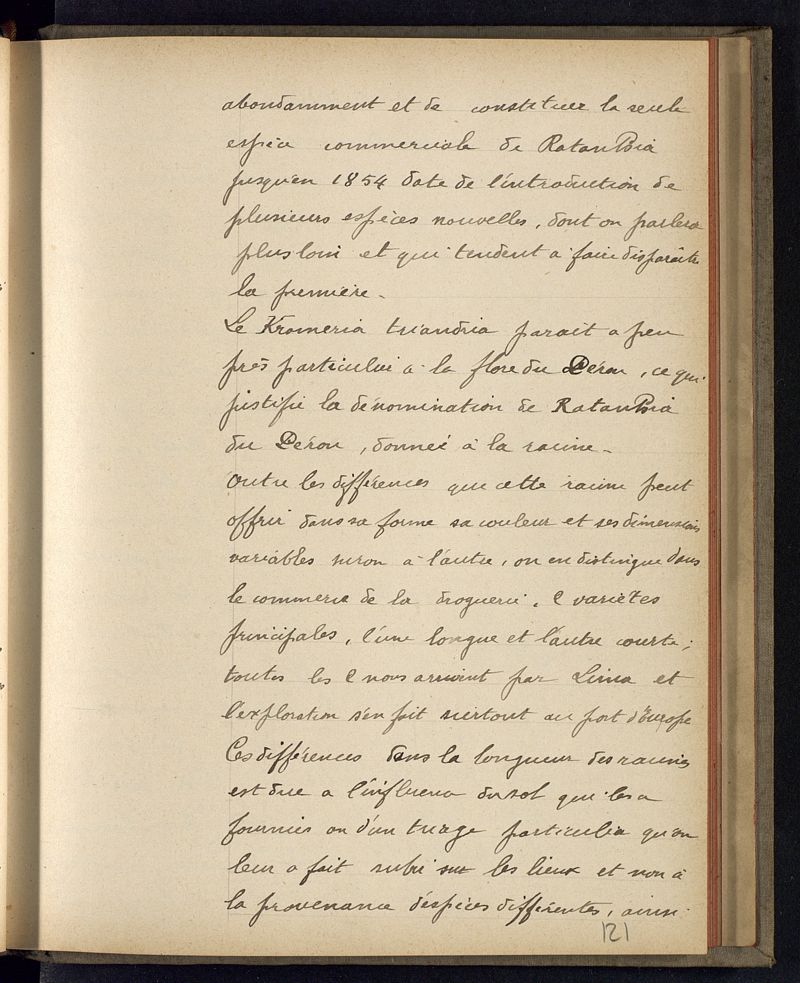 abondamment et de constituer la seule
espèce commerciale de RatanPhia
jusqu'en 1854 date de l'introduction de
plusieurs espèces nouvelles, dont on parlera
plus loin et qui tendent a faire disparaitre
la première -
Le Krameria triandria parait a peu
près particulier a la flore du Pérou, ce qui
justifie la dénomination de RatanPhia
du Pérou, donneé à la racine -
Outre les différences que cette racine peut
offrir dans sa forme sa couleur et ses dimensions
variables suron à l'autre, on en distingue dans
le commerce de la droguerie, 2 variétes
principales, l'une longue et l'autre courte;
toutes les 2 nous arrivent par Lima et
l'exploration s'en fait surtout au port d'Europe
Ces différences dans la longueur des racines
est due a l'influence du sol qui les a
fournies ou d'un triage particulier qu'on
leur a fait subir sur les lieux et non à
la provenance d'éspèces différentes, ainsi
121